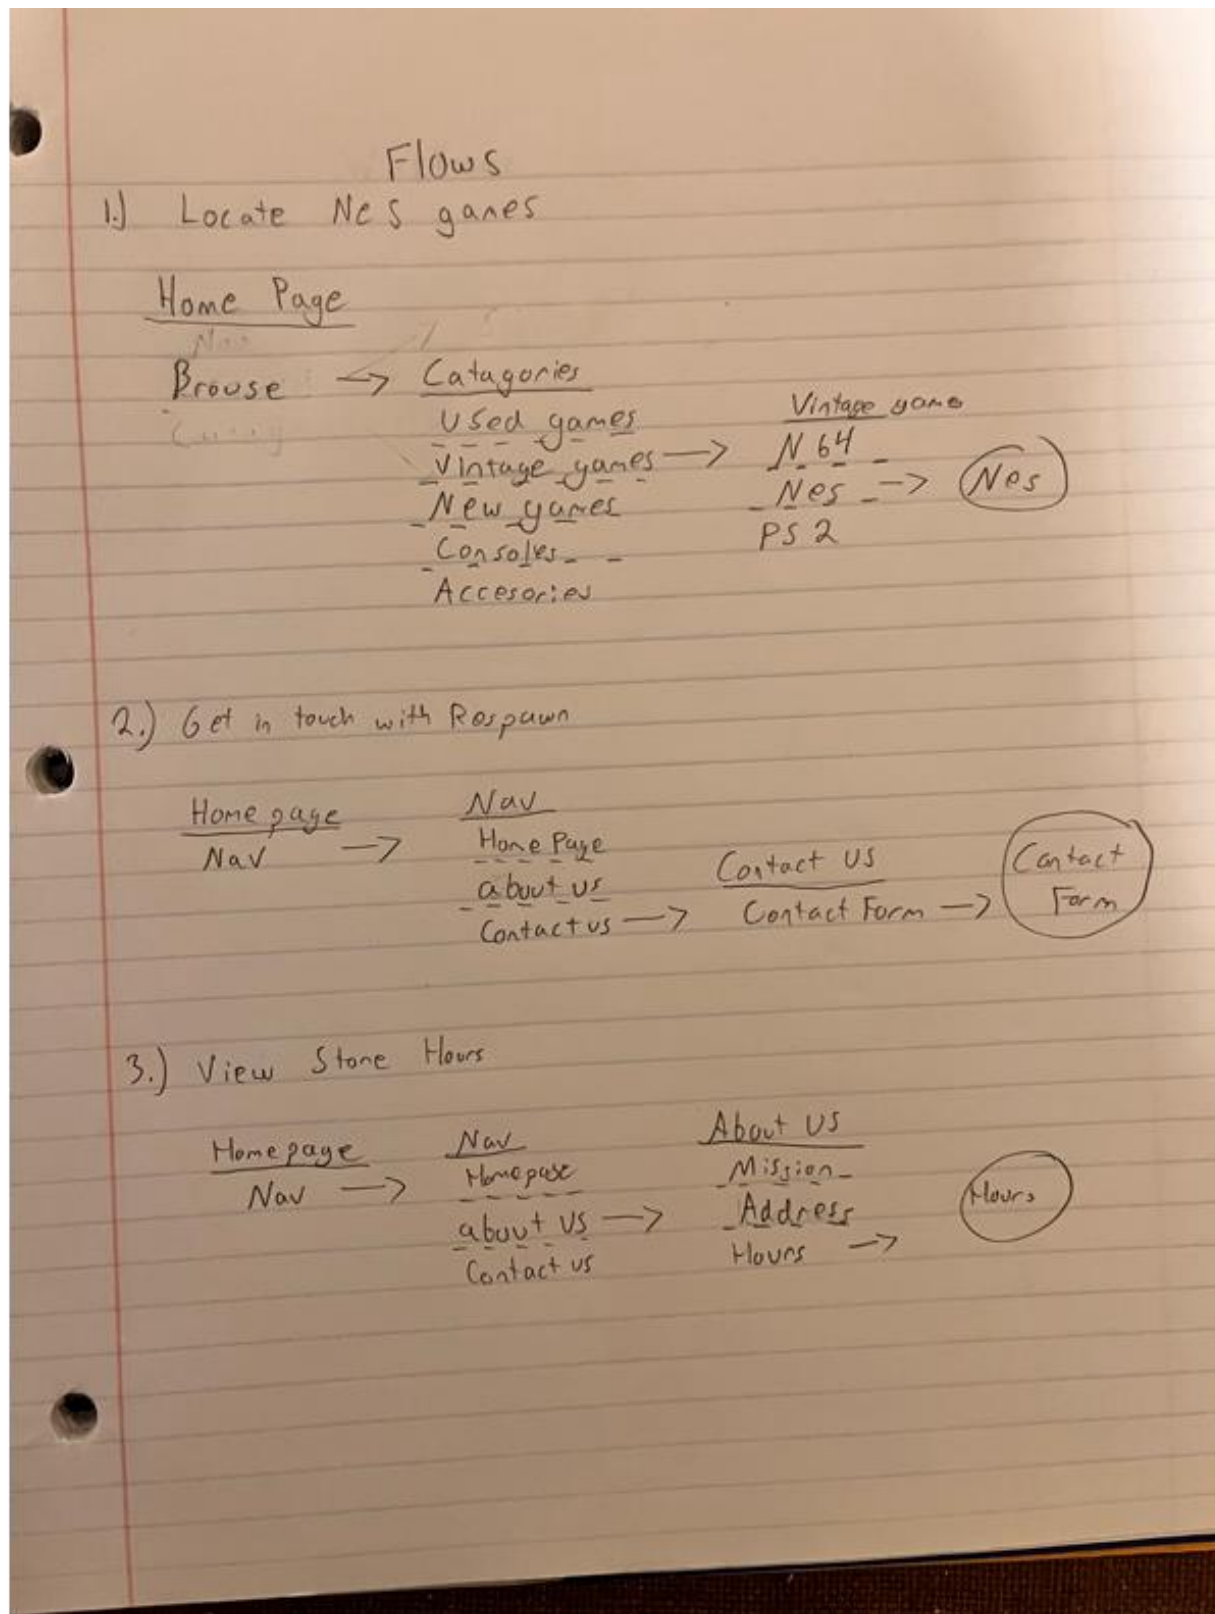 Flows
1.) Locate Nes games
Home Page
Brouse -> Catagories
Used games
Vintage games -> Vintage game
N64
Nes -> Nes
PS2
New games
Consoles
Accesories
2.) Get in touch with Respawn
Homepage
Nav -> Nav
Home Page
about us
Contact us -> Contact US
Contact Form -> Contact
Form
3.) View Store Hours
Homepage
Nav -> Nav
Homepage
about US -> About US
Mission
Address
Hours -> Hours
Contact us